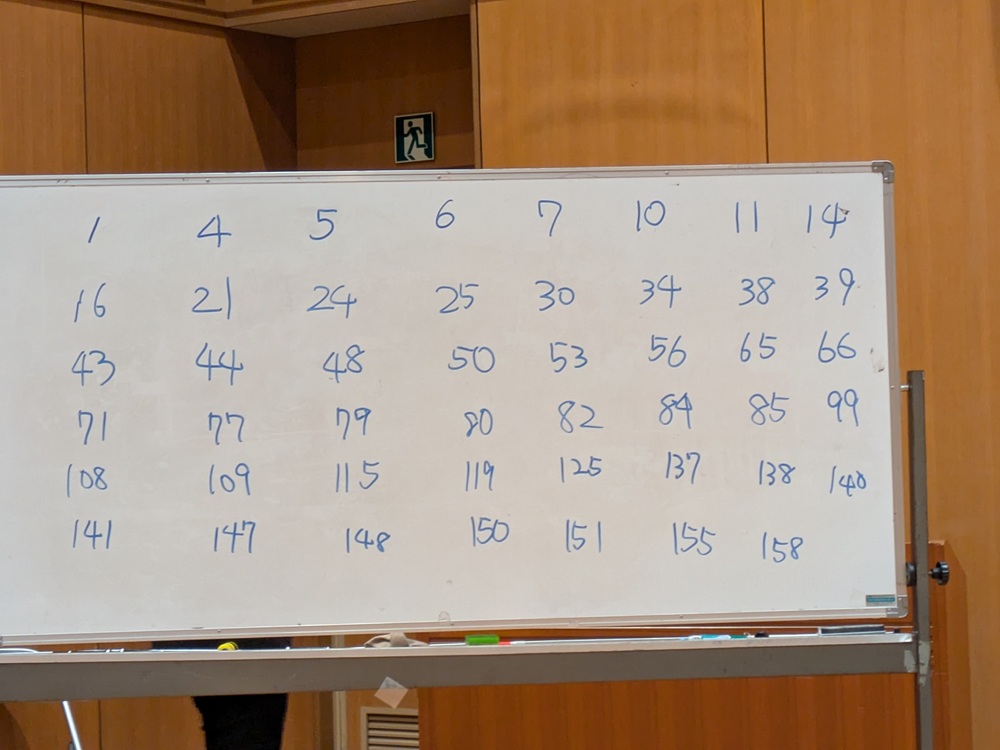 1 4 5 6 7 10 11 14
16 21 24 25 30 34 38 39
43 44 48 50 53 56 65 66
71 77 79 80 82 84 85 99
108 109 115 119 125 137 138 140
141 147 148 150 151 155 158